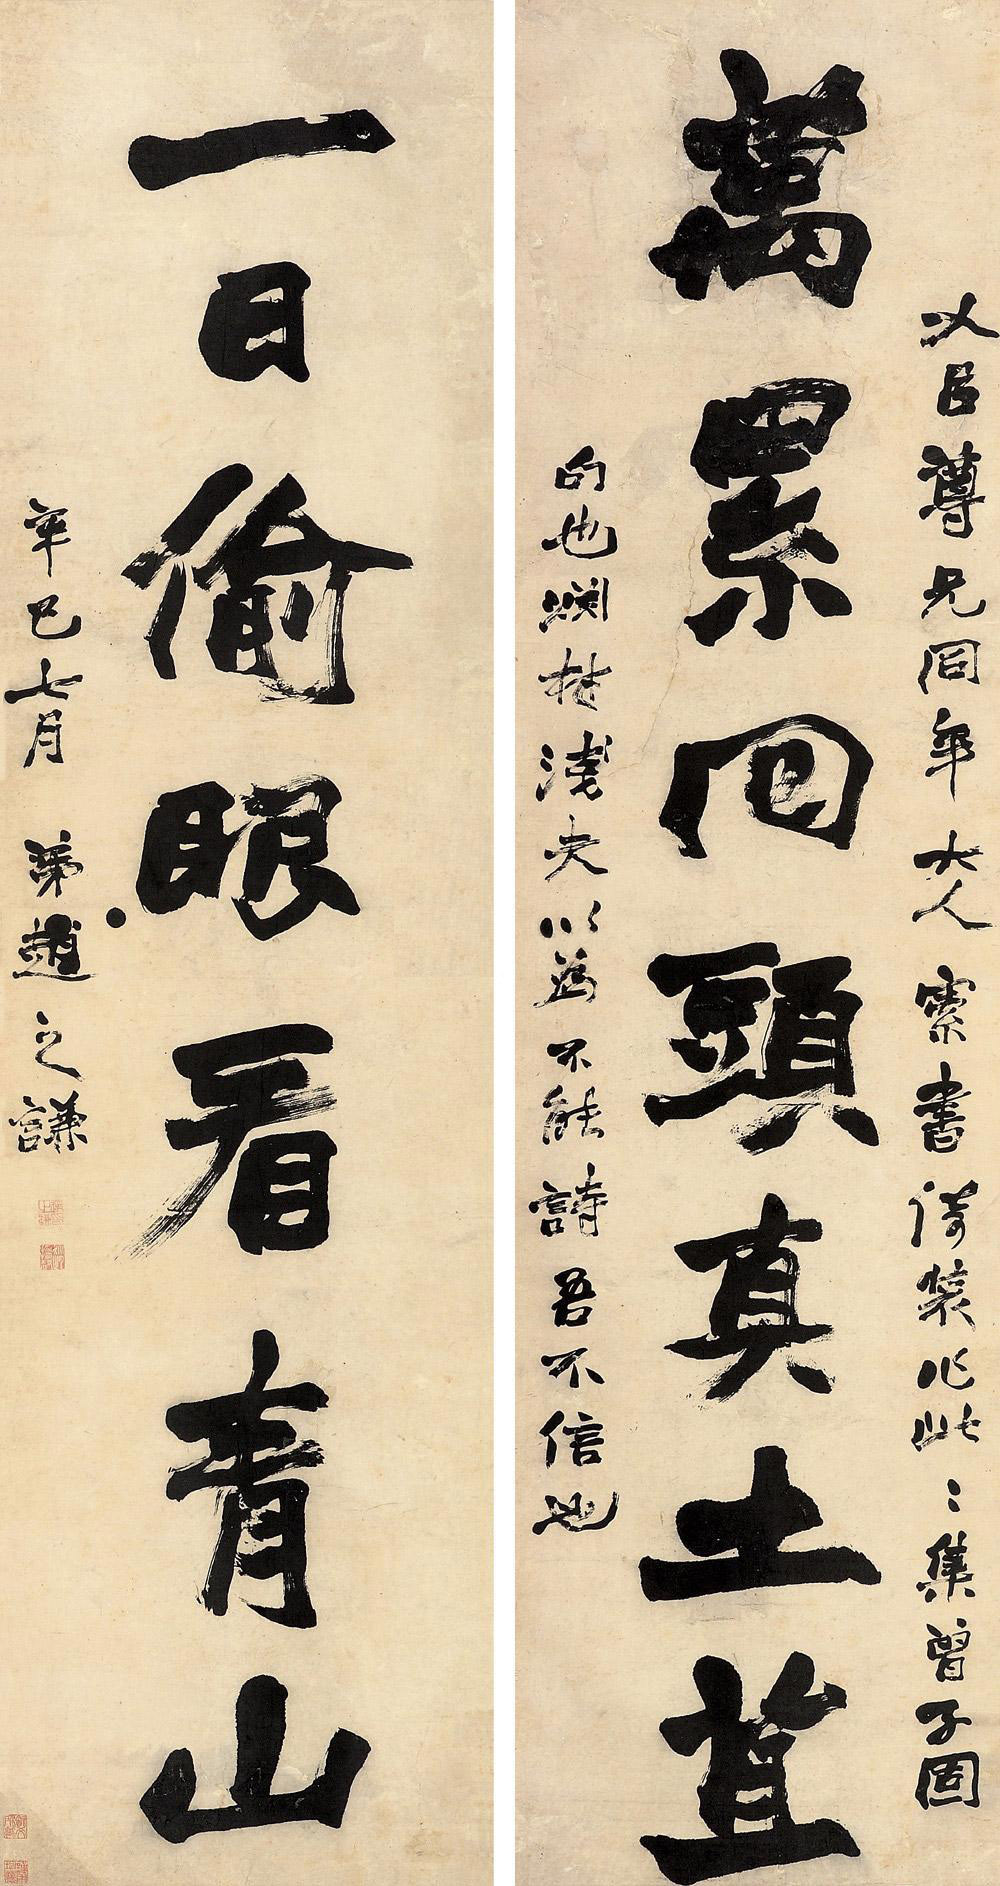 臣尊兄同年大人索書倚裝作此〻集曾子固
萬累回頭真土苴
句也淵材淺夫以爲不能詩吾不信也
一日偷眼看青山
辛巳七月弟趙之謙